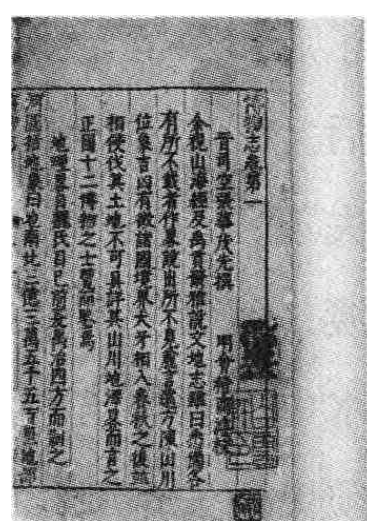 博物志卷第一
晉司空張華茂先撰 明會稽
余視山海經及禹貢爾雅說文地志雖曰悉備各
有所不載者作畧說出所不見粗言遠方陳山川
位象吉凶有徵諸國境界犬牙相入春秋之後
相侵伐其土地不可具詳其山川地澤畧而言之
正國十二博物之士覽而鑒焉
地理畧自魏氏目已前夏禹治四方而制之
河圖括地象曰地南北三億三萬五千五百里地